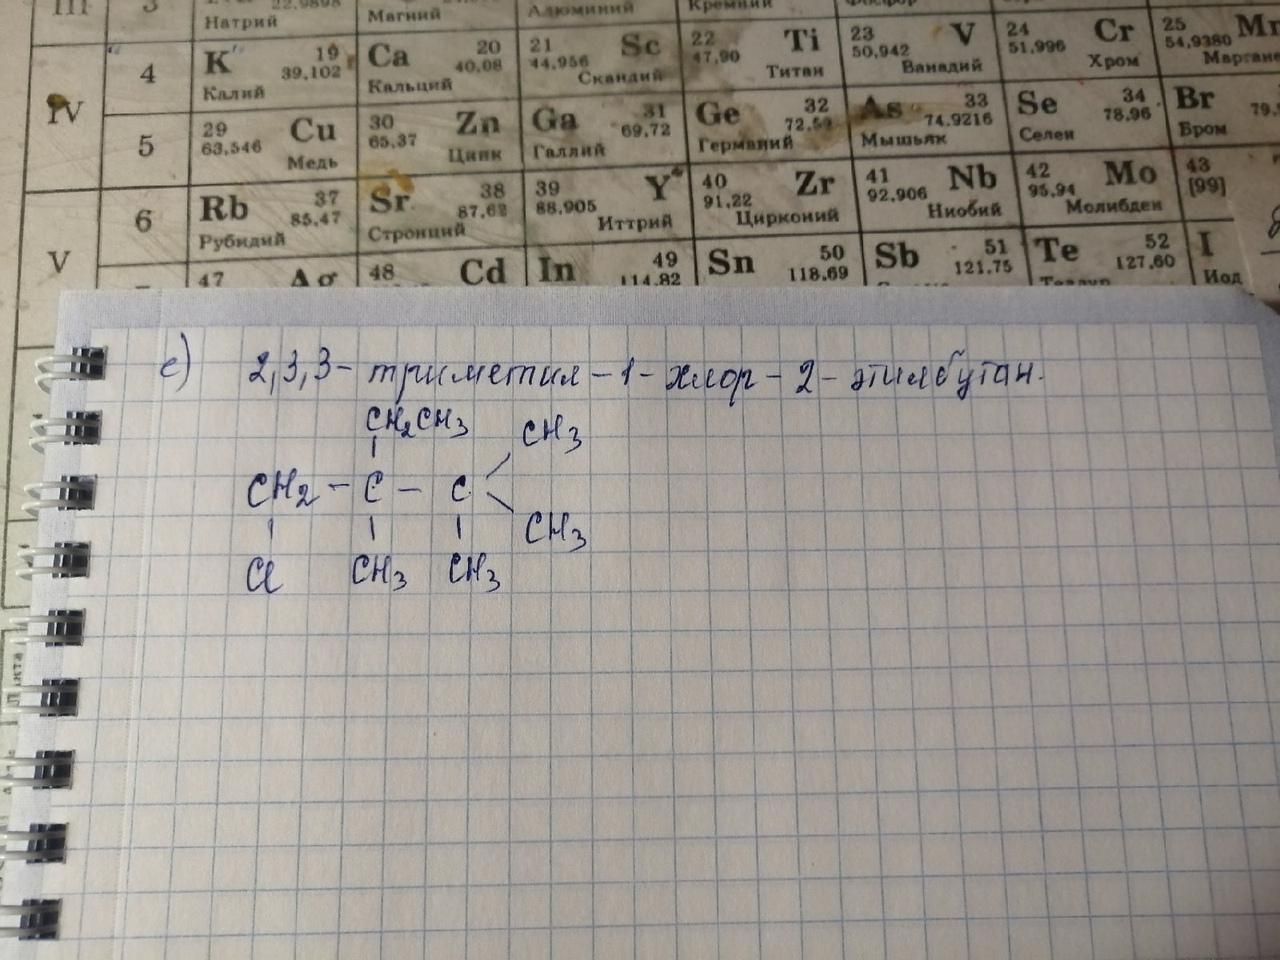 III 3 22,9898
Натрий Магний Алюминий Кремний
IV 4 K 19 39,102 Калий Ca 20 40,08 Кальций 21 44,956 Sc Скандий 22 47,90 Ti Титан 23 50,942 V Ванадий 24 51,996 Cr Хром 25 54,9380
5 29 63,546 Cu Медь 30 65,37 Zn Цинк Ga 31 69,72 Галлий Ge 32 72,59 Германий As 33 74,9216 Мышьяк Se 34 78,96 Селен Br Бром
V 6 Rb 37 85,47 Рубидий Sr 38 87,62 Стронций 39 88,905 Y Иттрий 40 91,22 Zr Цирконий 41 92,906 Nb Ниобий 42 95,94 Mo Молибден 43 [99]
47 Ag 48 Cd In 49 114,82 Sn 50 118,69 Sb 51 121,75 Te 52 127,60 I Иод
е) 2,3,3- триметил-1-хлор-2-этилбутан.
CH2CH3 CH3
CH2 - C - C
CH3
Cl CH3 CH3